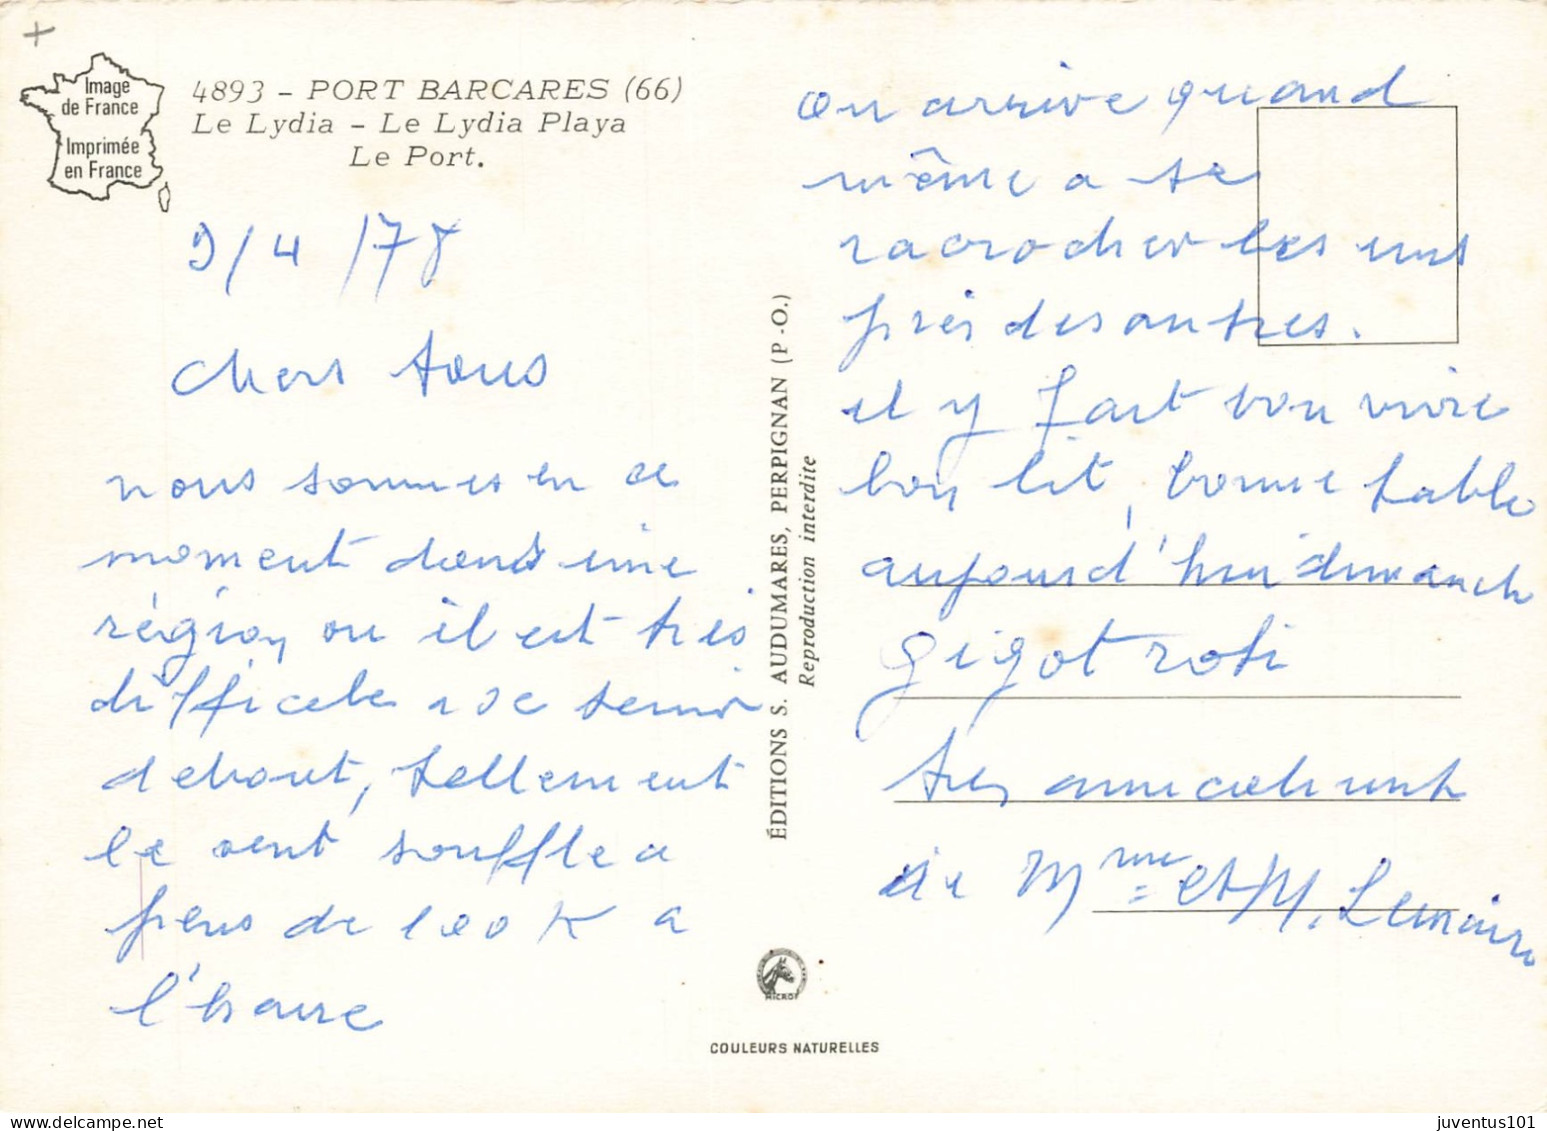 Image
de France
Imprimée
en France
4893 - PORT BARCARES (66)
Le Lydia - Le Lydia Playa
Le Port.
9/4/78
chers tous
nous sommes en ce
moment dans une
région ou il est très
difficele de tenir
debout, tellement
le vent souffle a
plus de 100 K a
l'heure
ÉDITIONS S. AUDUMARES, PERPIGNAN (P.-O.)
Reproduction interdite
MICRO
COULEURS NATURELLES
on arrive quand
même a se
racrocher les uns
près des autres.
il y fait bon vivre
bon lit, bonne table
aujourd'hui dimanch
gigot roti
très amicalement
de Mme et M. Lemaire
juventus101